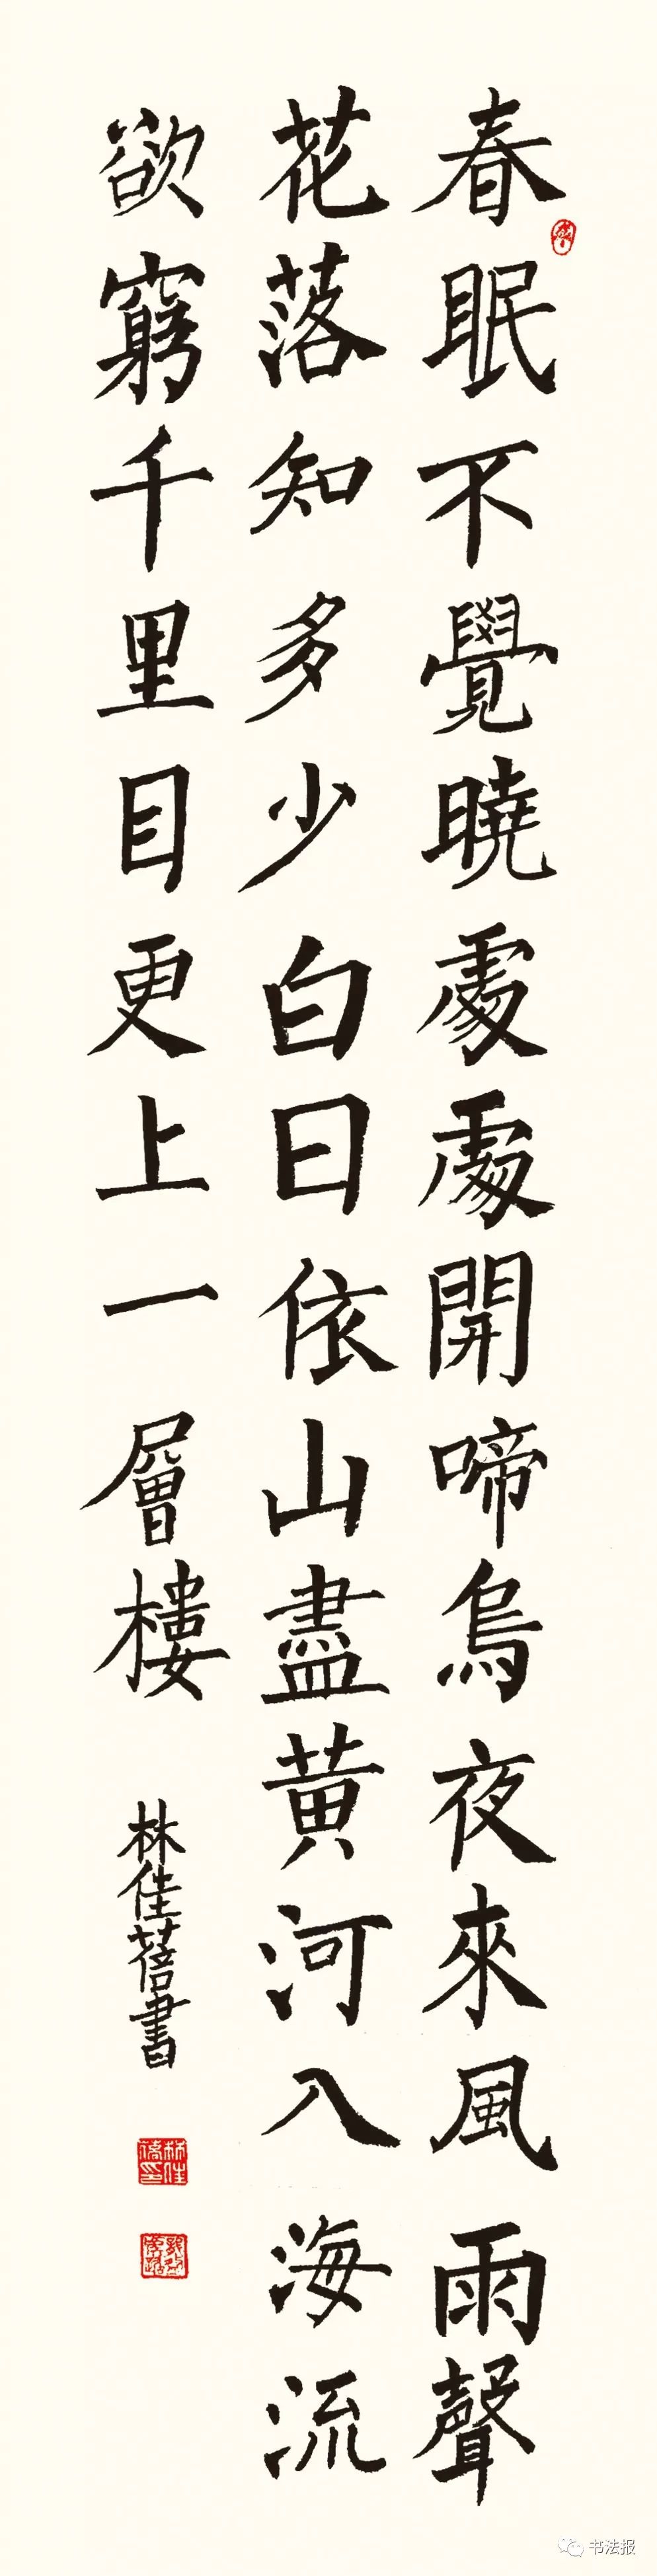 春眠不覺曉處處開啼烏夜來風雨聲
花落知多少白日依山盡黄河入海流
欲窮千里目更上一層樓
林佳蓓書
林佳蓓印
书法报